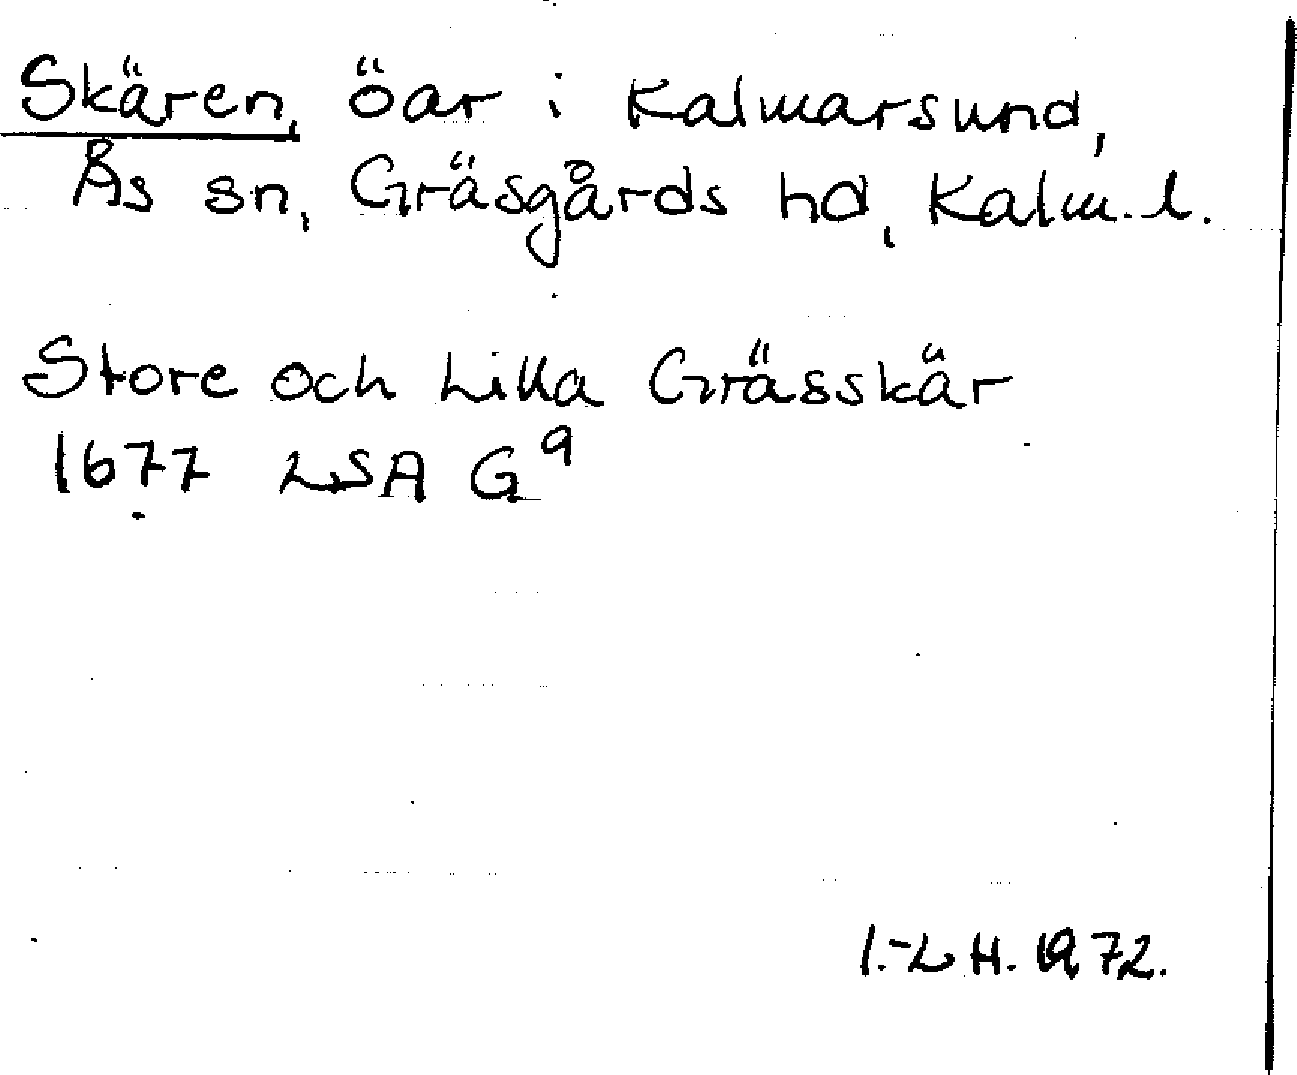 Skären, öar i Kalmarsund,
Ås sn, Gräsgårds hd, Kalm. l.
Store och Lilla Grässkär
1677 LSA G⁹
I.-L H. 1972.